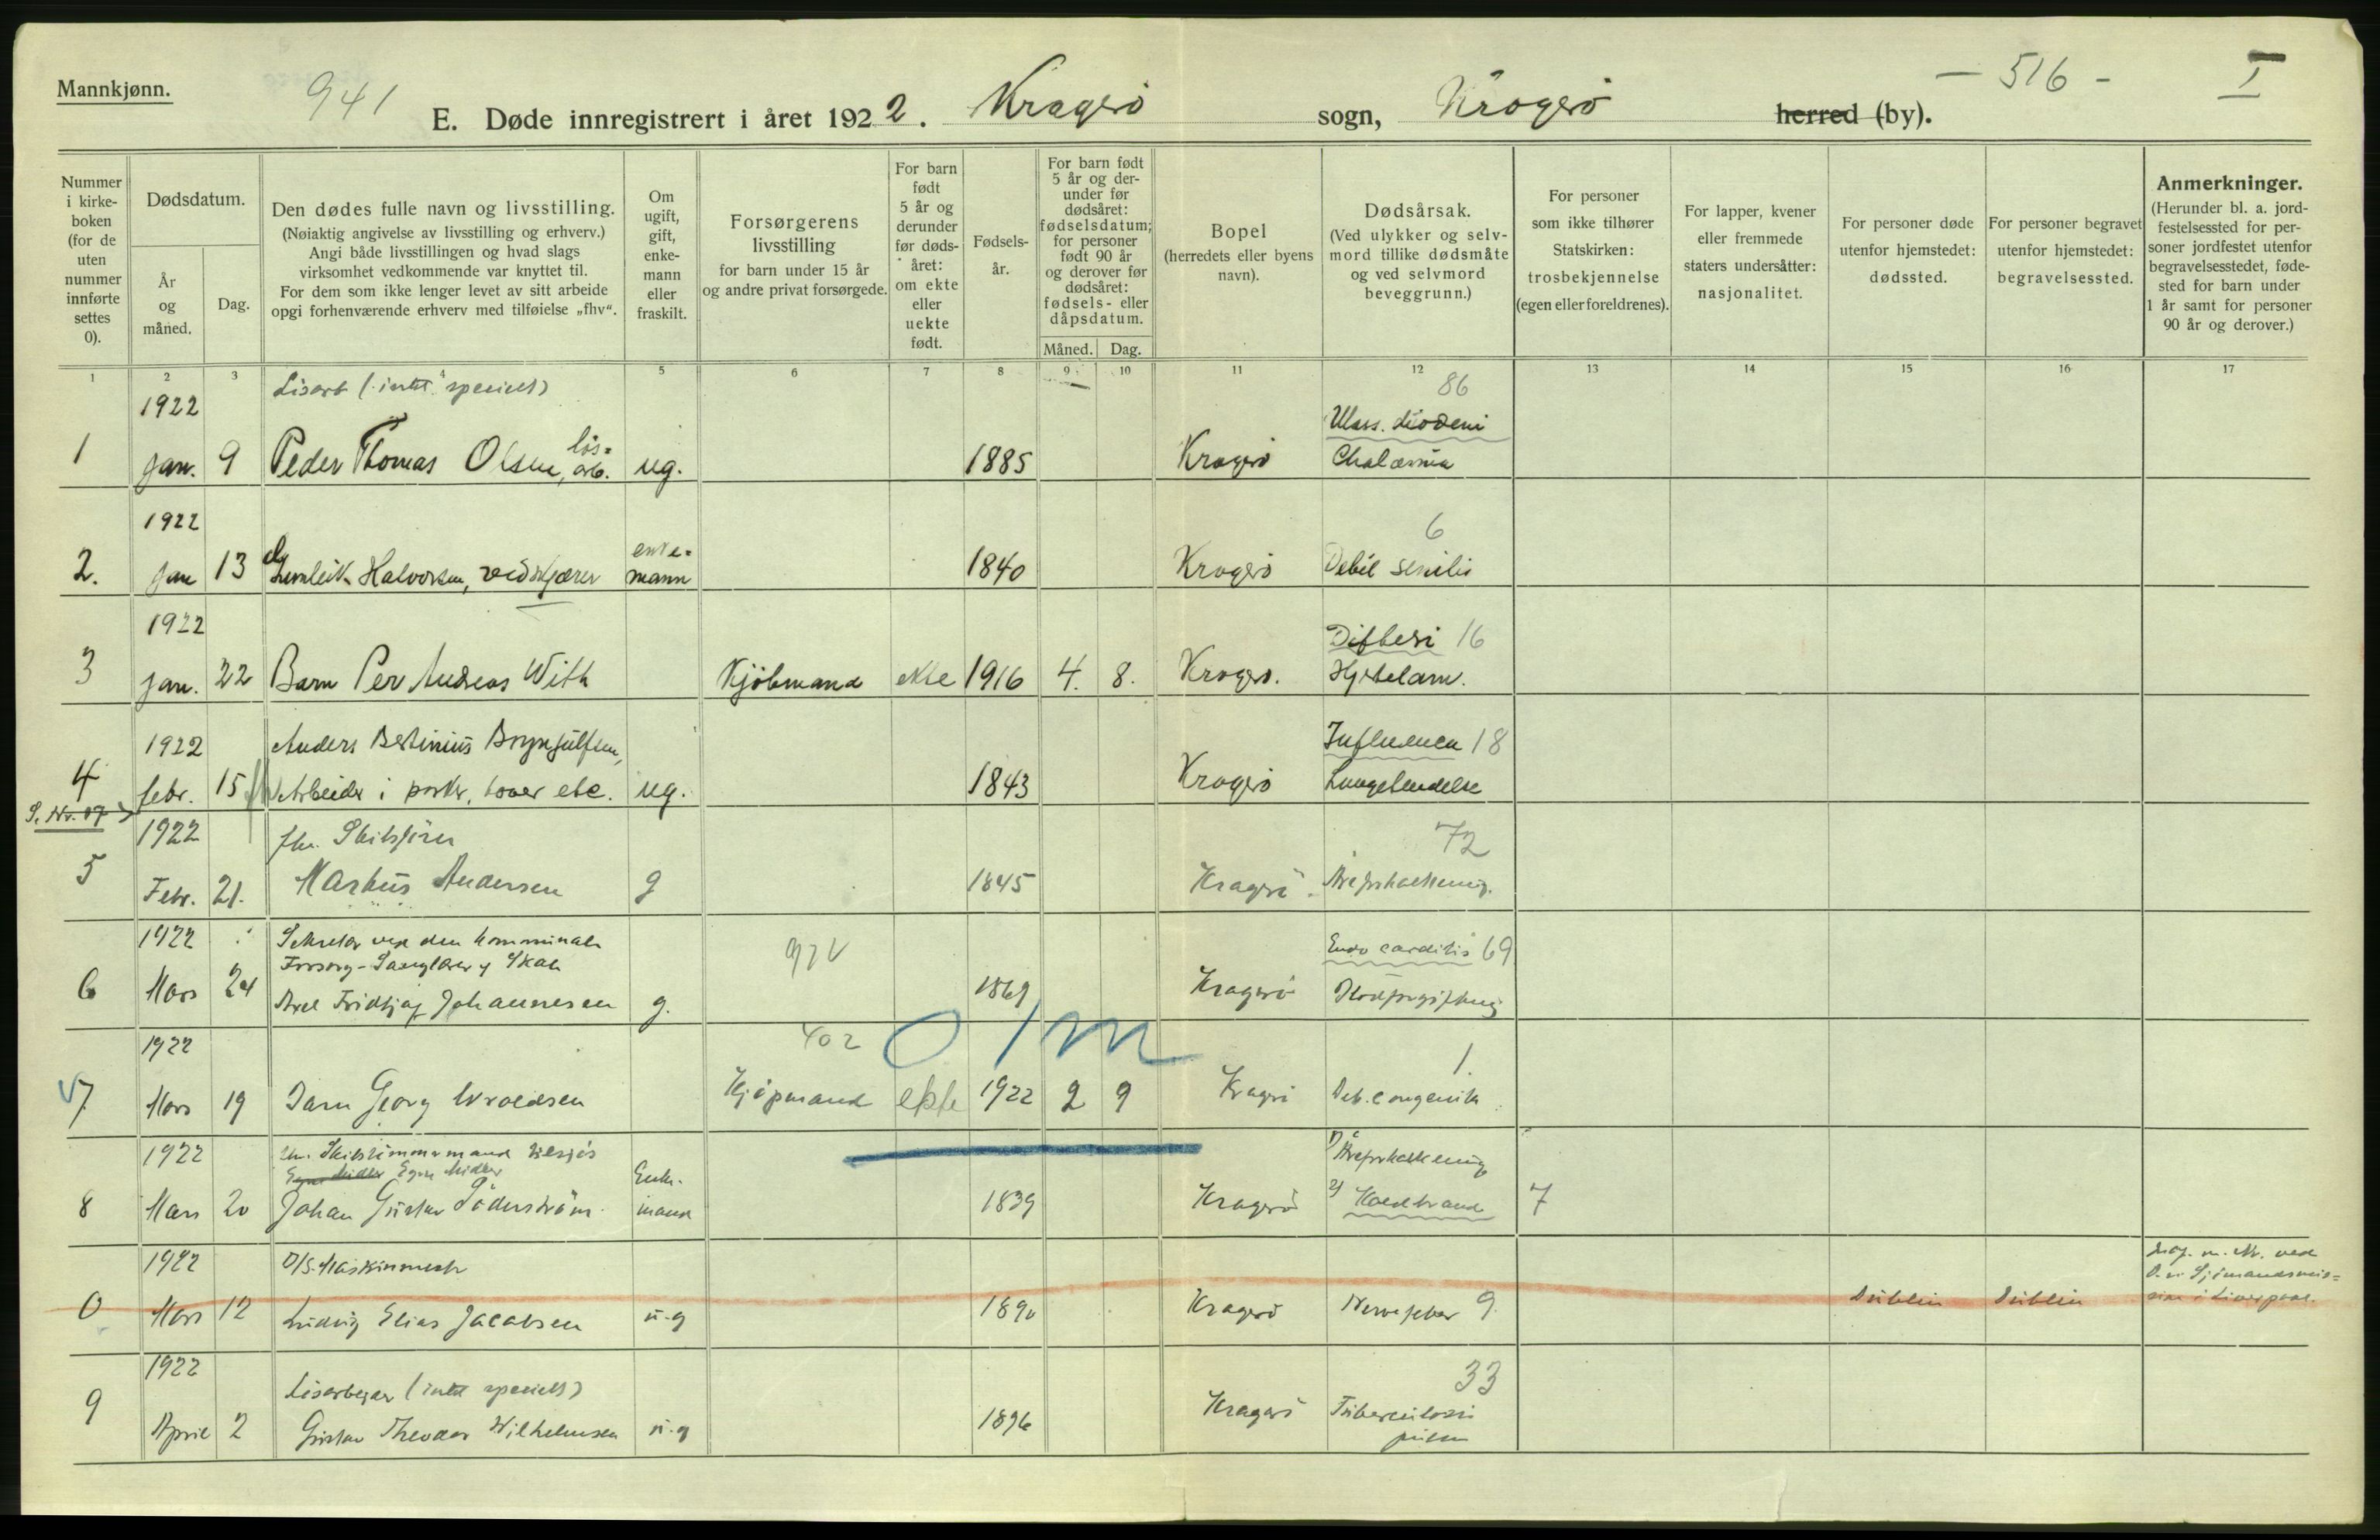 Mannkjønn.
941
- 516 -
I
E. Døde innregistrert i året 1922. Kragerö sogn, Kragerö herred (by).
Nummer i kirkeboken (for de uten nummer innførte settes 0).
Dødsdatum.
År og måned.
Dag.
Den dødes fulle navn og livsstilling.
(Nøiaktig angivelse av livsstilling og erhverv.)
Angi både livsstillingen og hvad slags
virksomhet vedkommende var knyttet til.
For dem som ikke lenger levet av sitt arbeide
opgi forhenværende erhverv med tilføielse „fhv“.
Om ugift, gift, enkemann eller fraskilt.
Forsørgerens livsstilling
for barn under 15 år
og andre privat forsørgede.
For barn født 5 år og derunder før dødsåret: om ekte eller uekte født.
Fødselsår.
For barn født 5 år og derunder før dødsåret: fødselsdatum; for personer født 90 år og derover før dødsåret: fødsels- eller dåpsdatum.
Måned. Dag.
Bopel
(herredets eller byens navn).
Dødsårsak.
(Ved ulykker og selvmord tillike dødsmåte og ved selvmord beveggrunn.)
For personer som ikke tilhører Statskirken: trosbekjennelse (egen eller foreldrenes).
For lapper, kvener eller fremmede staters undersåtter: nasjonalitet.
For personer døde utenfor hjemstedet: dødssted.
For personer begravet utenfor hjemstedet: begravelsessted.
Anmerkninger.
(Herunder bl. a. jordfestelsessted for personer jordfestet utenfor begravelsesstedet, fødested for barn under 1 år samt for personer 90 år og derover.)
1 2 3 4 5 6 7 8 9 10 11 12 13 14 15 16 17
Lösarb (intet specielt) 86
1922
1 Jan. 9 Peder Thomas Olsen, lös=arb. ug. 1885 Kragerö Ulcus. duodeni
1922 6
2. Jan 13 Halvorsen, vedskjærer enkemann 1840 Kragerö Debil senilis
1922 Difteri 16
3 Jan. 22 Barn Per Andreas With Kjöbmand ekte 1916 4. 8. Kragerö. Hjertelam.
1922 Anders Bertinius Brynjulfsen, Influenza 18
4 febr. 15 Arbeider i ug. 1843 Kragerö Lungebetendelse
1922 fhv. Skibsförer 72
5 Febr. 21. Markus Andersen g 1845 Kragerö Åreforkalkning.
1922 Sekretær ved den kommunale Endocarditis 69
6 Mars 24 Axel Fridtjof Johannesen g. 1869 Kragerö Blodforgiftning
1922 402 0/m 1.
7 Mars 19 Barn Georg Wroldsen Kjöpmand ekte 1922 2 9 Kragerö Deb. congenita
1922 fhv. Skibstömmermand tilsjös 1) Åreforkalkning
Egne Midler
8 Mars 20 Johan Gustav Söderström Enkemand 1839 Kragerö 2) Koldbrand 7
1922 D/S. Maskinmester
0 Mars 12 Ludvig Elias Jacobsen u.g 1890 Kragerö Nervefeber 9. Dublin Dublin Sjömandsmission i Liverpool.
1922 Lösarbeider (intet specielt) 33
9 April 2 Gustav Theodor Wilhelmsen u.g 1896 Kragerö Tuberculosis pulm